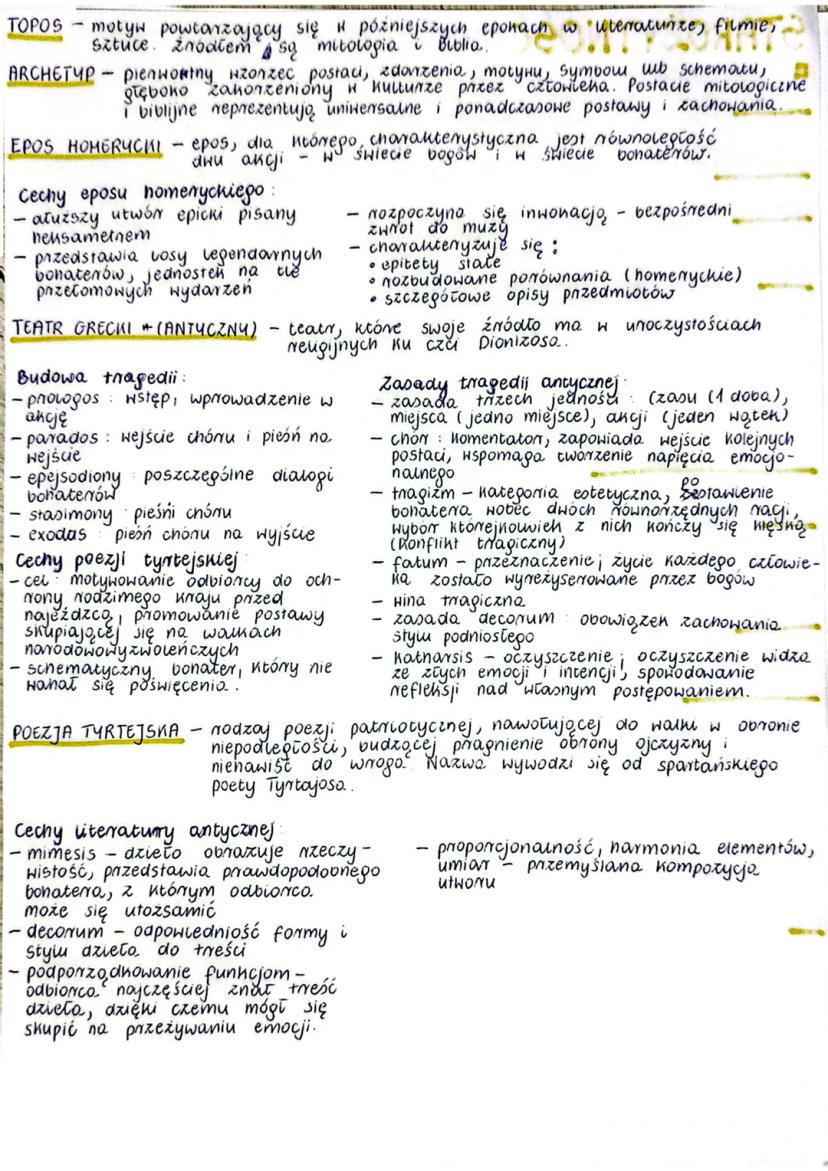 TOPOS – motyw powtarzający się w późniejszych epokach w literaturze, filmie,
sztuce. Źródłem są mitologia i Biblia.
ARCHETYP – pierwotny wzorzec postaci, zdarzenia, motywu, symbolu lub schematu,
głęboko zakorzeniony w kulturze przez człowieka. Postacie mitologiczne
i biblijne reprezentują uniwersalne i ponadczasowe postawy i zachowania.
EPOS HOMERYCKI – epos, dla którego charakterystyczna jest równoległość
dwu akcji – w świecie bogów i w świecie bohaterów.
Cechy eposu homeryckiego:
– dłuższy utwór epicki pisany
heksametrem
– przedstawia losy legendarnych
bohaterów, jednostek na tle
przełomowych wydarzeń
– rozpoczyna się inwokacją – bezpośredni
zwrot do muzy
– charakteryzuje się:
• epitety stałe
• rozbudowane porównania (homeryckie)
• szczegółowe opisy przedmiotów
TEATR GRECKI (ANTYCZNY) – teatr, które swoje źródło ma w uroczystościach
religijnych ku czci Dionizosa.
Budowa tragedii:
– prologos: wstęp, wprowadzenie w
akcję
– parados: wejście chóru i pieśń na
wejście
– epejsodiony: poszczególne dialogi
bohaterów
– stasimony: pieśni chóru
– exodas: pieśń chóru na wyjście
Cechy poezji tyrtejskiej:
– cel: motywowanie odbiorcy do och-
rony rodzimego kraju przed
najeźdźcą, promowanie postawy
skupiającej się na walkach
narodowowyzwoleńczych
– schematyczny bohater, który nie
wahał się poświęcenia.
Zasady tragedii antycznej:
– zasada trzech jedności: (czasu (1 doba),
miejsca (jedno miejsce), akcji (jeden wątek)
– chór: komentator, zapowiada wejście kolejnych
postaci, wspomaga tworzenie napięcia emocjo-
nalnego
– tragizm – kategoria estetyczna, postawienie
bohatera wobec dwóch równorzędnych racji,
wybór którejkowiek z nich kończy się klęską
(konflikt tragiczny)
– fatum – przeznaczenie; życie każdego człowie-
ka zostało wyreżyserowane przez bogów
– wina tragiczna
– zasada decorum: obowiązek zachowania
stylu podniosłego
– katharsis – oczyszczenie; oczyszczenie widza
ze złych emocji i intencji, spowodowanie
refleksji nad własnym postępowaniem.
POEZJA TYRTEJSKA – rodzaj poezji patriotycznej, nawołującej do walki w obronie
niepodległości, budzącej pragnienie obrony ojczyzny i
nienawiść do wroga. Nazwa wywodzi się od spartańskiego
poety Tyrtajosa.
Cechy literatury antycznej:
– mimesis – dzieło obrazuje rzeczy-
wistość, przedstawia prawdopodobnego
bohatera, z którym odbiorca
może się utożsamić
– decorum – odpowiedniość formy i
stylu dzieła do treści
– podporządkowanie funkcjom –
odbiorca najczęściej znał treść
dzieła, dzięki czemu mógł się
skupić na przeżywaniu emocji.
– proporcjonalność, harmonia elementów,
umiar – przemyślana kompozycja
utworu